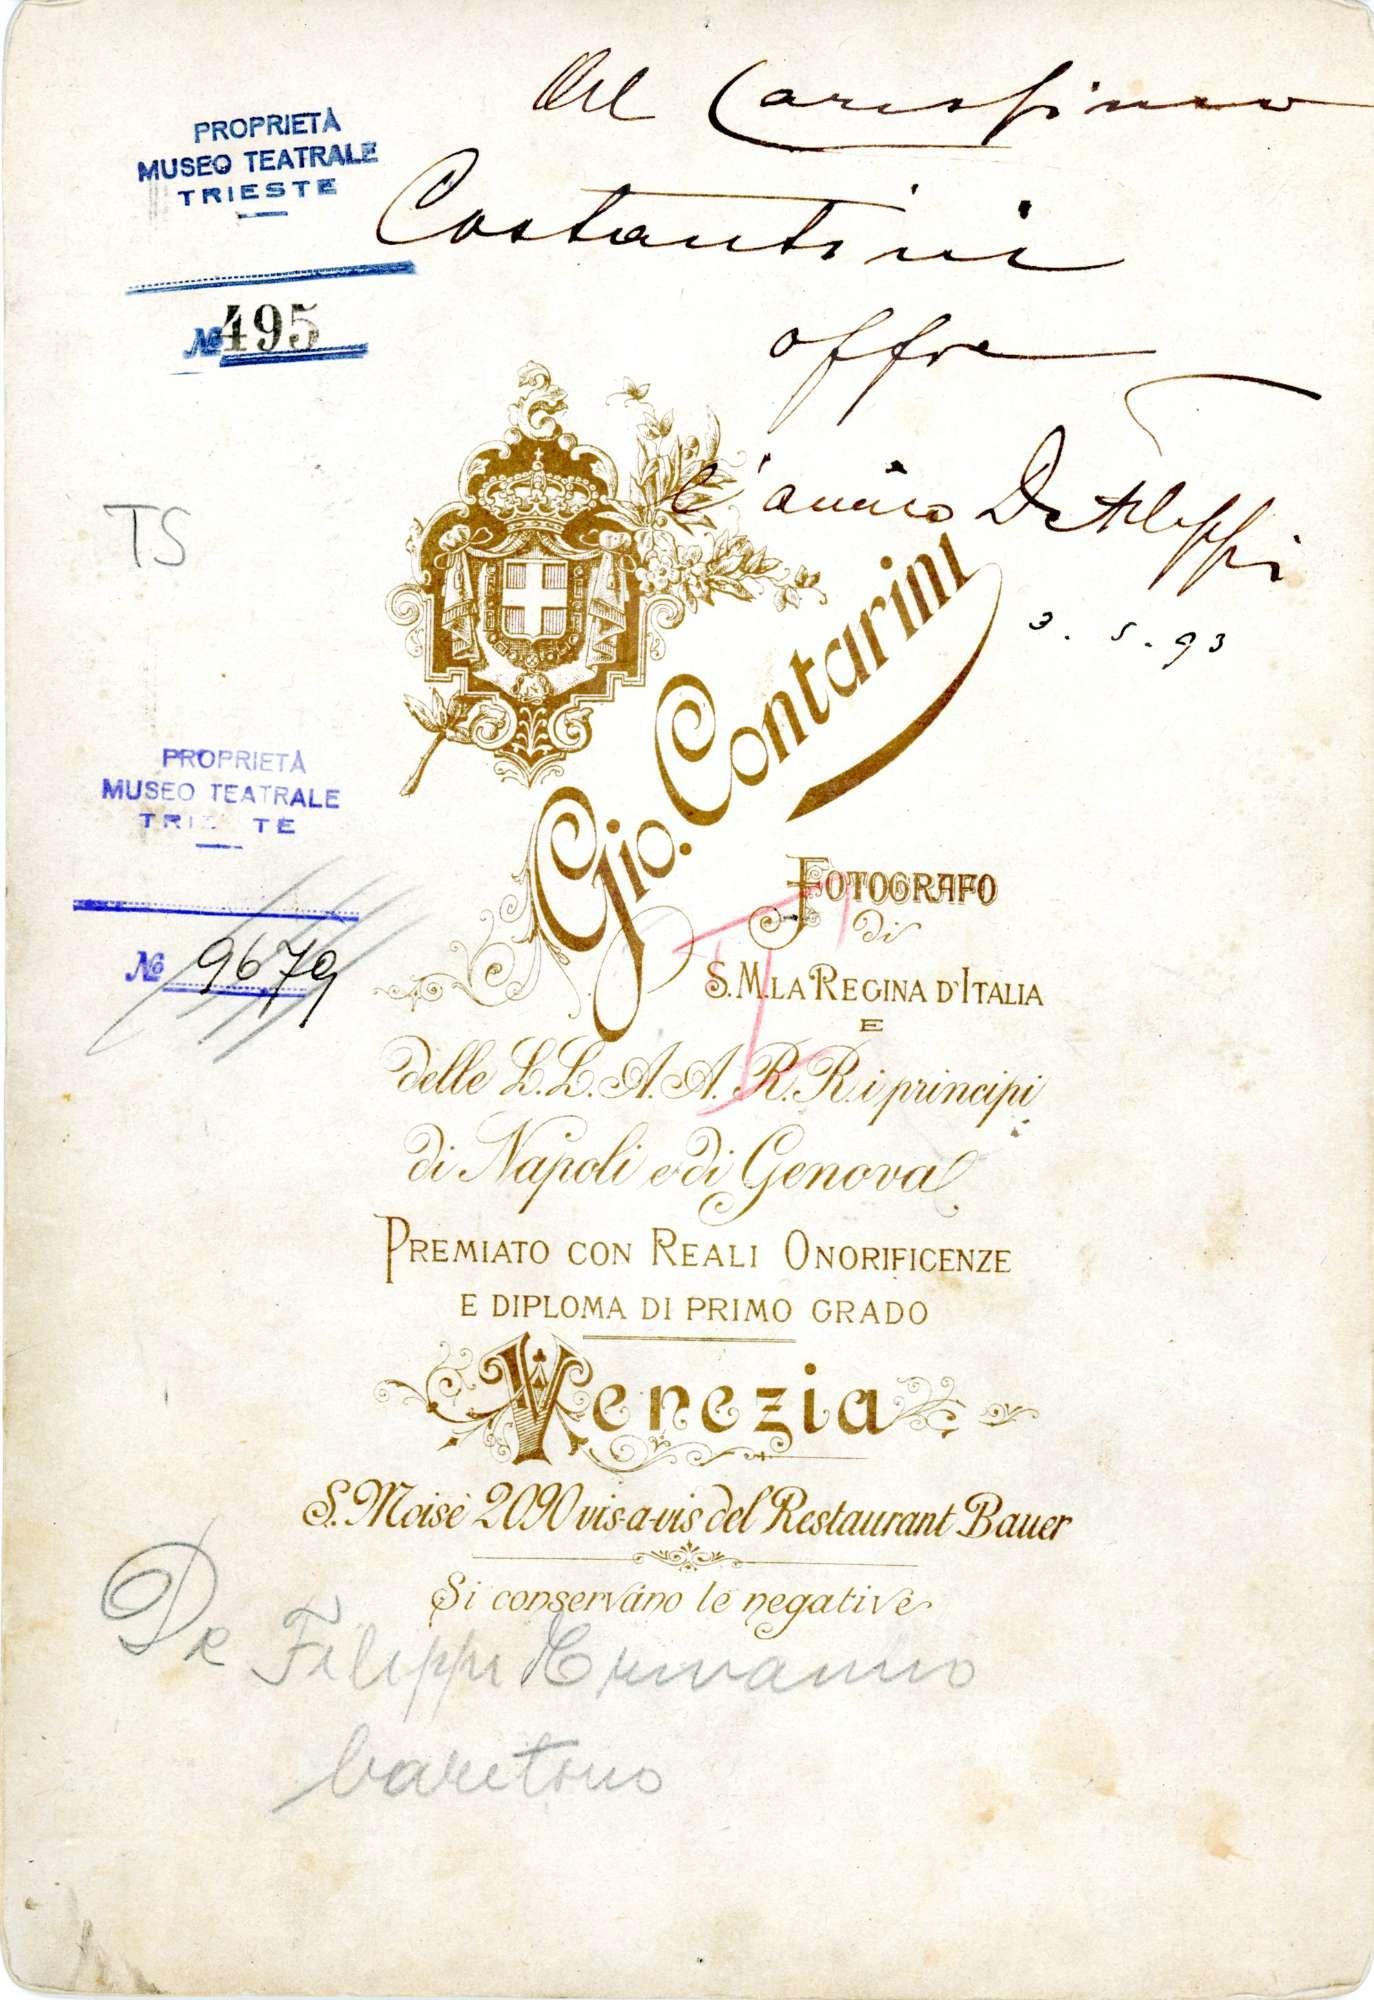 Al Carissimo
Costantini
offre
l'amico De Filippi
3. 5. 93
PROPRIETÀ
MUSEO TEATRALE
TRIESTE
№ 495
TS
Gio. Contarini
FOTOGRAFO
di
S. M. LA REGINA D'ITALIA
E
delle L.L. A.A. R.R. i principi
di Napoli e di Genova
PREMIATO CON REALI ONORIFICENZE
E DIPLOMA DI PRIMO GRADO
Venezia
S. Moisè 2090 vis-a-vis del Restaurant Bauer
Si conservano le negative
PROPRIETÀ
MUSEO TEATRALE
TRI TE
№ 9679
De Filippi
baritono